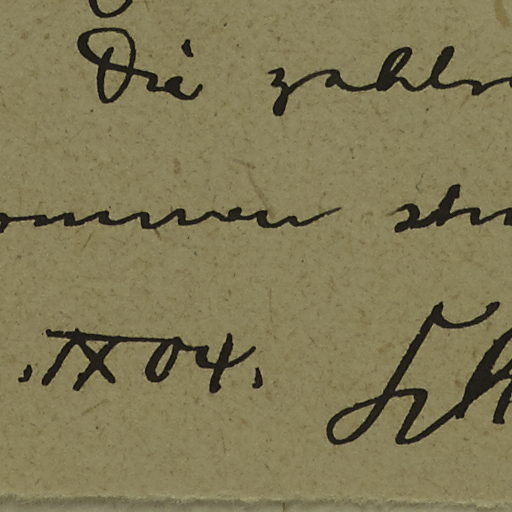 Die zahlr
ommen stu
. IX 04.